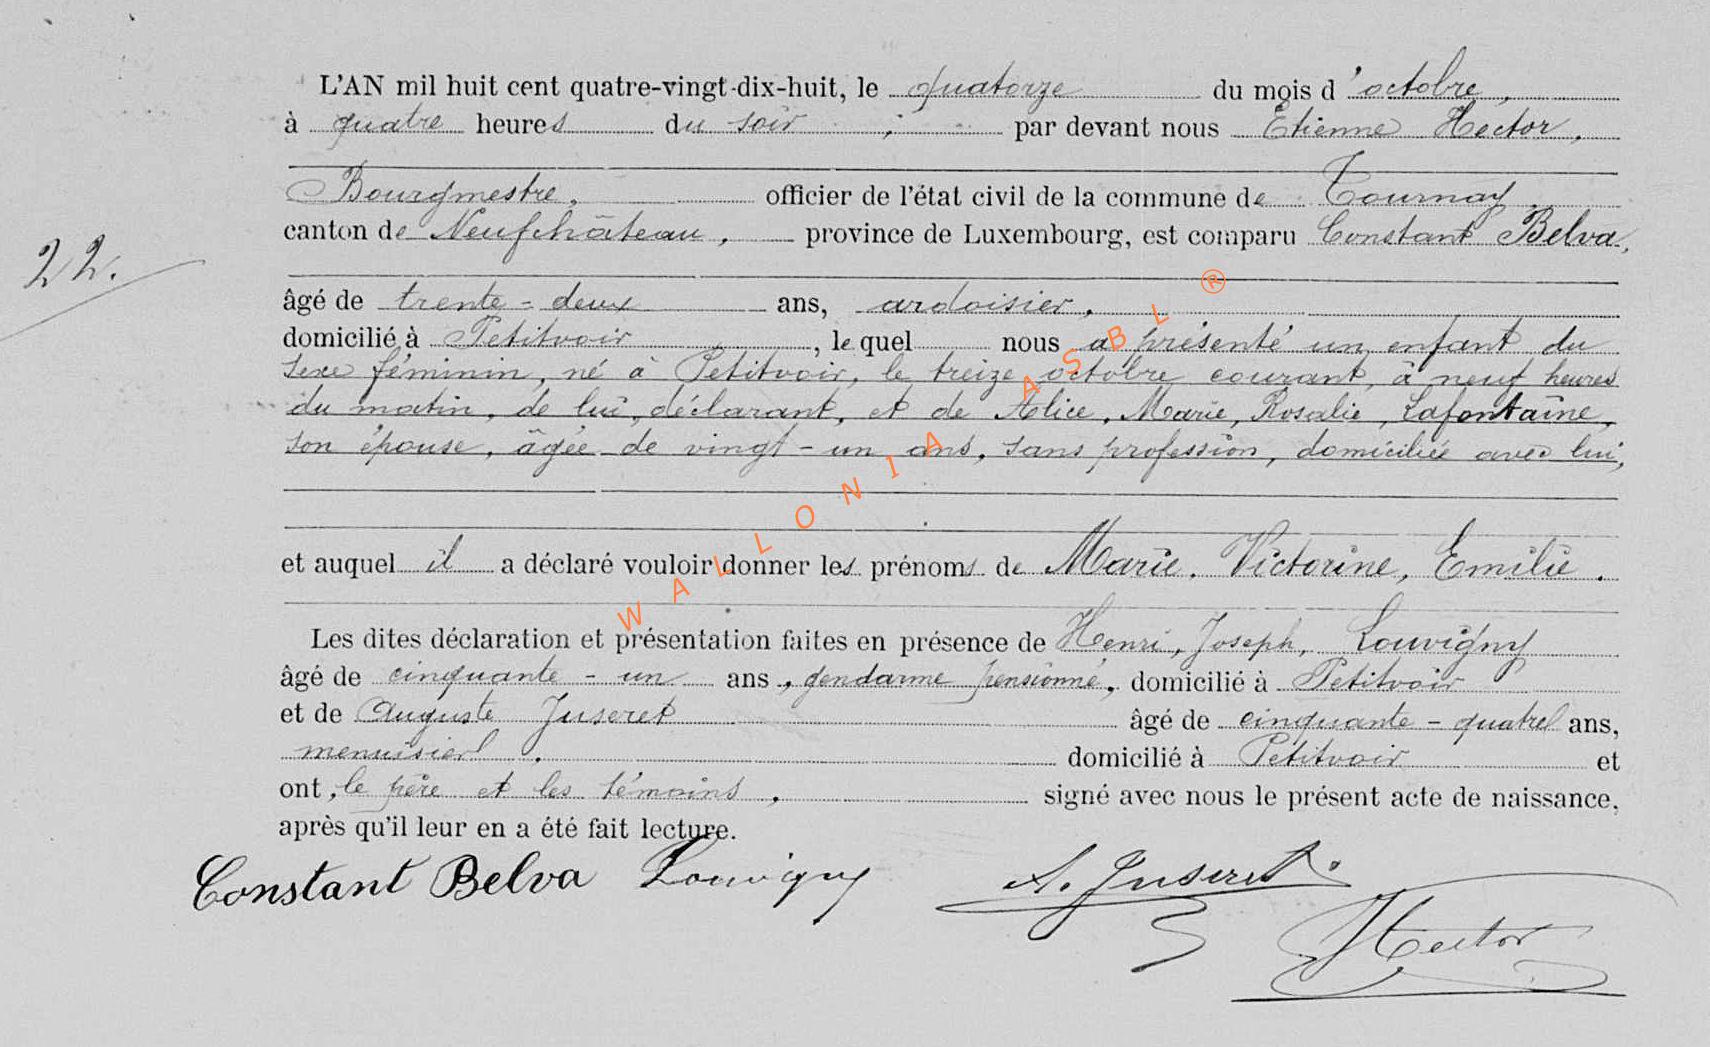 L'AN mil huit cent quatre-vingt-dix-huit, le quatorze du mois d'octobre,
à quatre heures du soir, par devant nous Etienne Hector,
Bourgmestre, officier de l'état civil de la commune de Tournay,
22.
canton de Neufchâteau, province de Luxembourg, est comparu Constant Belva,
âgé de trente-deux ans, ardoisier,
domicilié à Petitvoir, lequel nous a présenté un enfant du
sexe féminin, né à Petitvoir, le treize octobre courant, à neuf heures
du matin, de lui, déclarant, et de Alice, Marie, Rosalie, Lafontaine,
son épouse, âgée de vingt-un ans, sans profession, domiciliée avec lui,
et auquel il a déclaré vouloir donner les prénoms de Marie, Victorine, Emilie.
Les dites déclaration et présentation faites en présence de Henri, Joseph, Louvigny
âgé de cinquante-un ans, gendarme pensionné, domicilié à Petitvoir
et de Auguste Juseret âgé de cinquante-quatre ans,
menuisier, domicilié à Petitvoir et
ont, le père et les témoins, signé avec nous le présent acte de naissance,
après qu'il leur en a été fait lecture.
Constant Belva Louvigny A. Juseret.
Hector
WALLONIA ASBL ®